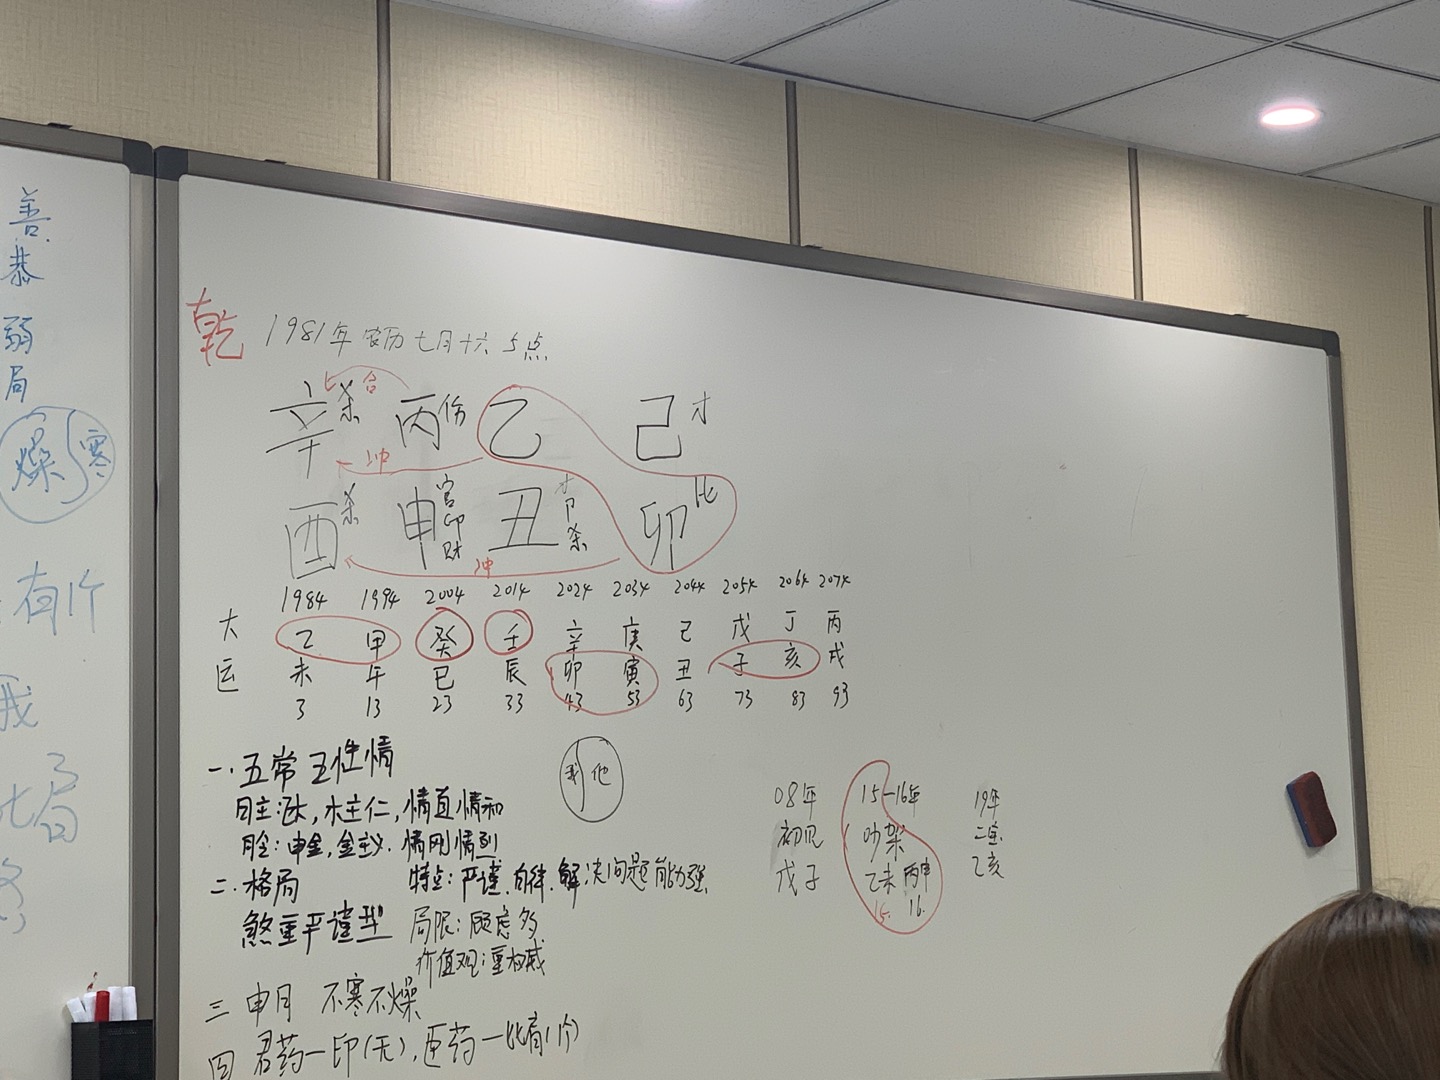 善
恭
弱
局
燥 寒
有1个
我
局
乾 1981年 农历 七月十六 5点
合
辛 杀 丙 伤 乙 己 才
冲
酉 杀 申 官 印 财 丑 才 卩 杀 卯 比
冲
1984 1994 2004 2014 2024 2034 2044 2054 2064 2074
大 乙 甲 癸 壬 辛 庚 己 戊 丁 丙
运 未 午 巳 辰 卯 寅 丑 子 亥 戌
3 13 23 33 43 53 63 73 83 93
一.五常 五性情
我 他
日主: 木主仁,情直情和
月令:申金,金主义.情刚情烈
二.格局 特点:严谨.自律.解决问题能力强
煞重严谨型 局限:顾虑多
价值观:重权威
三 申月 不寒不燥
四 君药一印(无),臣药一比有(1个)
08年 15-16年 19年
初见 吵架
戊子 乙未 丙申 乙亥
15. 16.